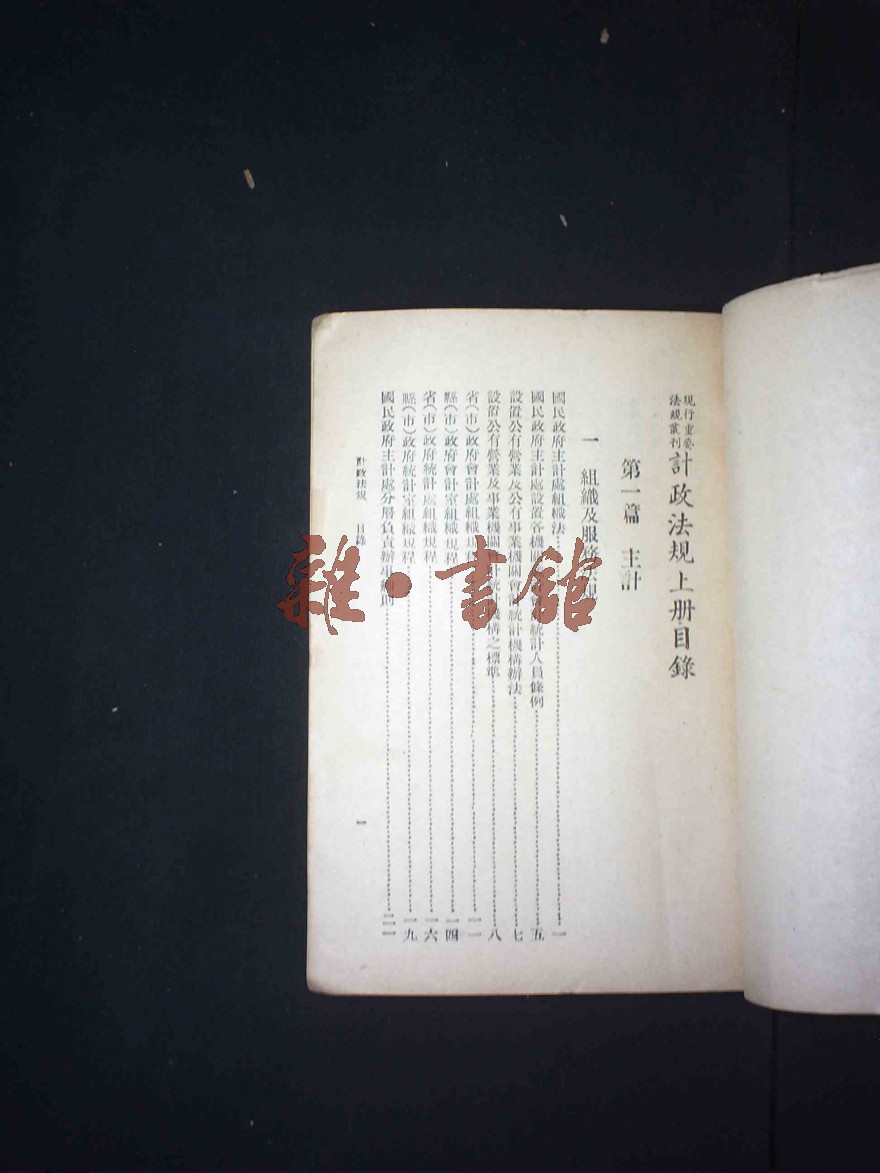 現行重要
法規叢刊
計政法規上册目錄
第一篇 主計
一 組織及服務法規
國民政府主計處組織法 一
國民政府主計處設置各機 統計人員條例 五
設置公有營業及公有事業機關會計統計機構辦法 七
設置公有營業及事業機關 統 機構之標準 八
省(市)政府會計處組織規程 一一
縣(市)政府會計室組織規程 一四
省(市)政府統計處組織規程 一六
縣(市)政府統計室組織規程 一九
國民政府主計處分層負責辦事細則 二一
計政法規 目錄
一
雜·書館